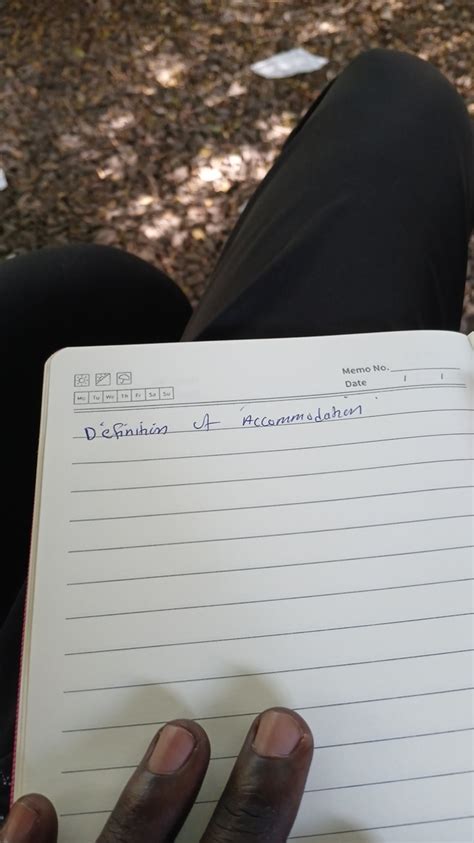 Memo No.
Date / /
Mo Tu We Th Fr Sa Su
Definition of Accommodation